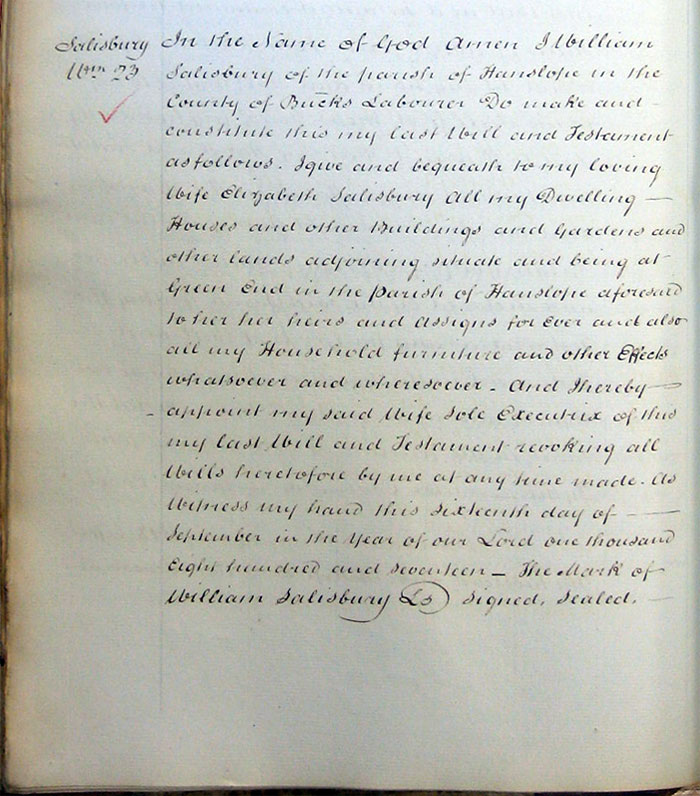 Salisbury
Wm 23
In the Name of God Amen I William
Salisbury of the parish of Hanslope in the
County of Bucks Labourer Do make and
constitute this my last Will and Testament
as follows. I give and bequeath to my loving
Wife Elizabeth Salisbury All my Dwelling —
Houses and other Buildings and Gardens and
other lands adjoining situate and being at
Green End in the parish of Hanslope aforesaid
to her her heirs and assigns for Ever and also
all my Household furniture and other Effects
whatsoever and wheresoever - And I hereby —
appoint my said Wife Sole Executrix of this
my last Will and Testament revoking all
Wills heretofore by me at any time made. As
Witness my hand this sixteenth day of — —
September in the Year of our Lord one thousand
Eight hundred and seventeen — The Mark of
William Salisbury Ls signed, sealed, —